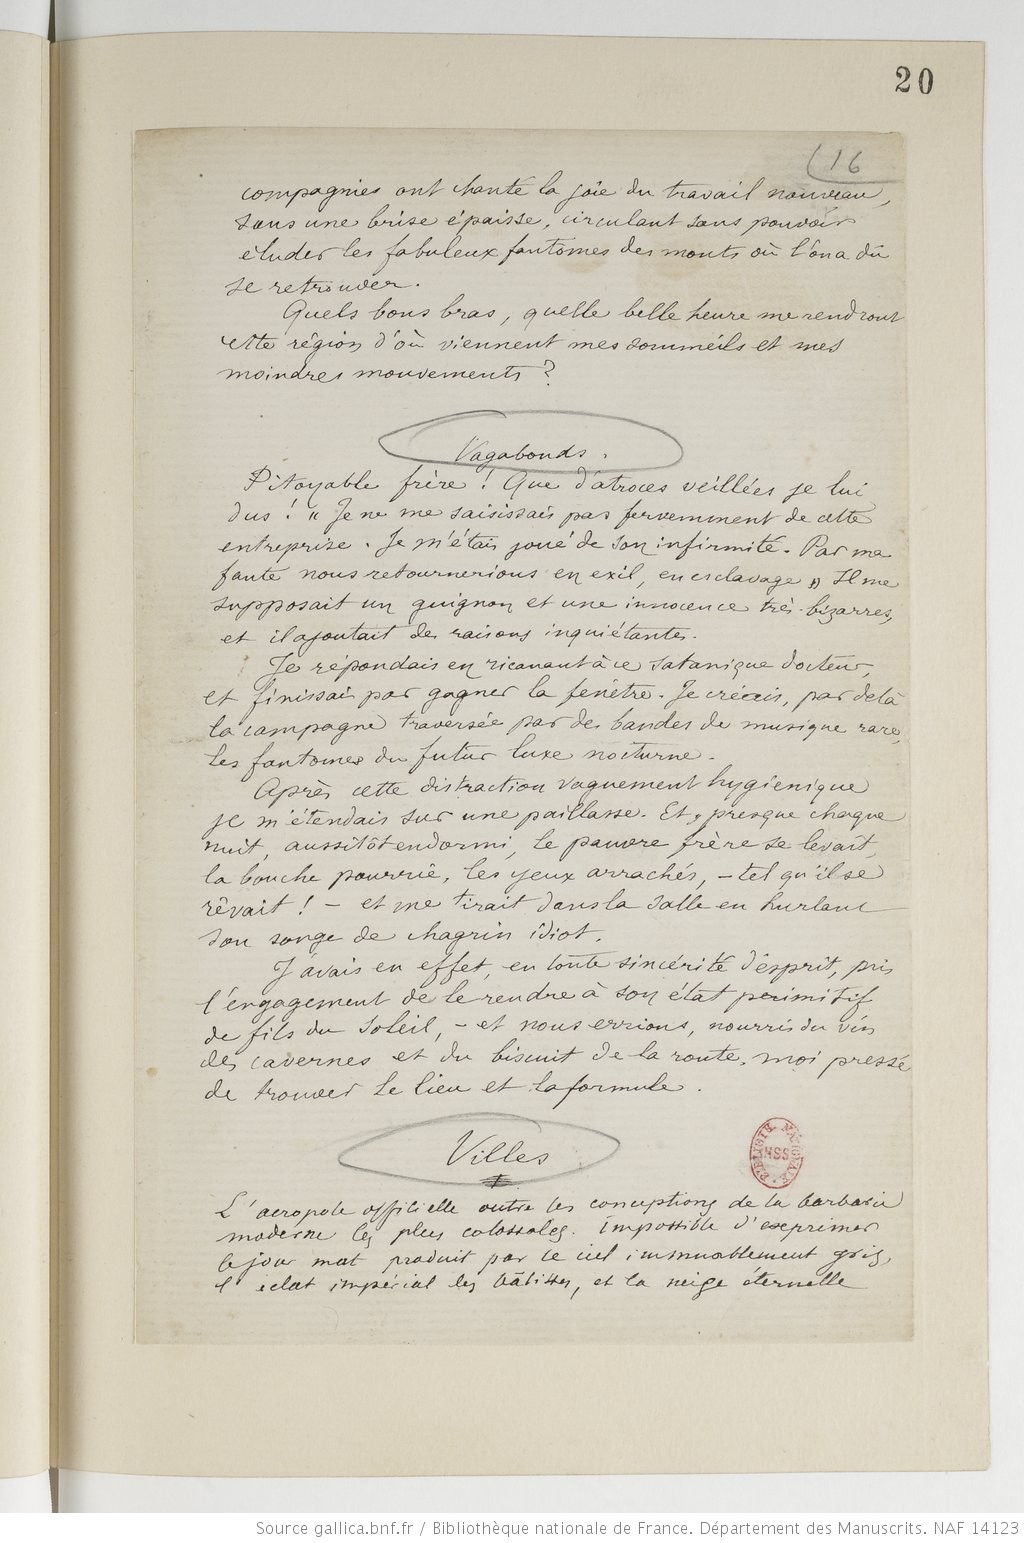 20
(16
compagnies ont chanté la joie du travail nouveau,
sous une brise épaisse, circulant sans pouvoir
éluder les fabuleux fantômes des monts où l'on a dû
se retrouver.
Quels bons bras, quelle belle heure me rendront
cette région d'où viennent mes sommeils et mes
moindres mouvements ?
Vagabonds.
Pitoyable frère ! Que d'atroces veillées je lui
dus ! "Je ne me saisissais pas fervemment de cette
entreprise. Je m'étais joué de son infirmité. Par ma
faute nous retournerions en exil, en esclavage." Il me
supposait un guignon et une innocence très-bizarres,
et il ajoutait des raisons inquiétantes.
Je répondais en ricanant à ce satanique docteur,
et finissais par gagner la fenêtre. Je créais, par delà
la campagne traversée par des bandes de musique rare,
les fantômes du futur luxe nocturne.
Après cette distraction vaguement hygiénique
je m'étendais sur une paillasse. Et, presque chaque
nuit, aussitôt endormi, le pauvre frère se levait,
la bouche pourrie, les yeux arrachés, – tel qu'il se
rêvait ! – et me tirait dans la salle en hurlant
son songe de chagrin idiot.
J'avais en effet, en toute sincérité d'esprit, pris
l'engagement de le rendre à son état primitif
de fils du soleil, – et nous errions, nourris du vin
des cavernes et du biscuit de la route, moi pressé
de trouver le lieu et la formule.
Villes
BIBLIOTH. NATIONALE MSS
L'acropole officielle outre les conceptions de la barbarie
moderne les plus colossales. Impossible d'exprimer
le jour mat produit par le ciel immuablement gris,
l'éclat impérial des bâtisses, et la neige éternelle
Source gallica.bnf.fr / Bibliothèque nationale de France. Département des Manuscrits. NAF 14123